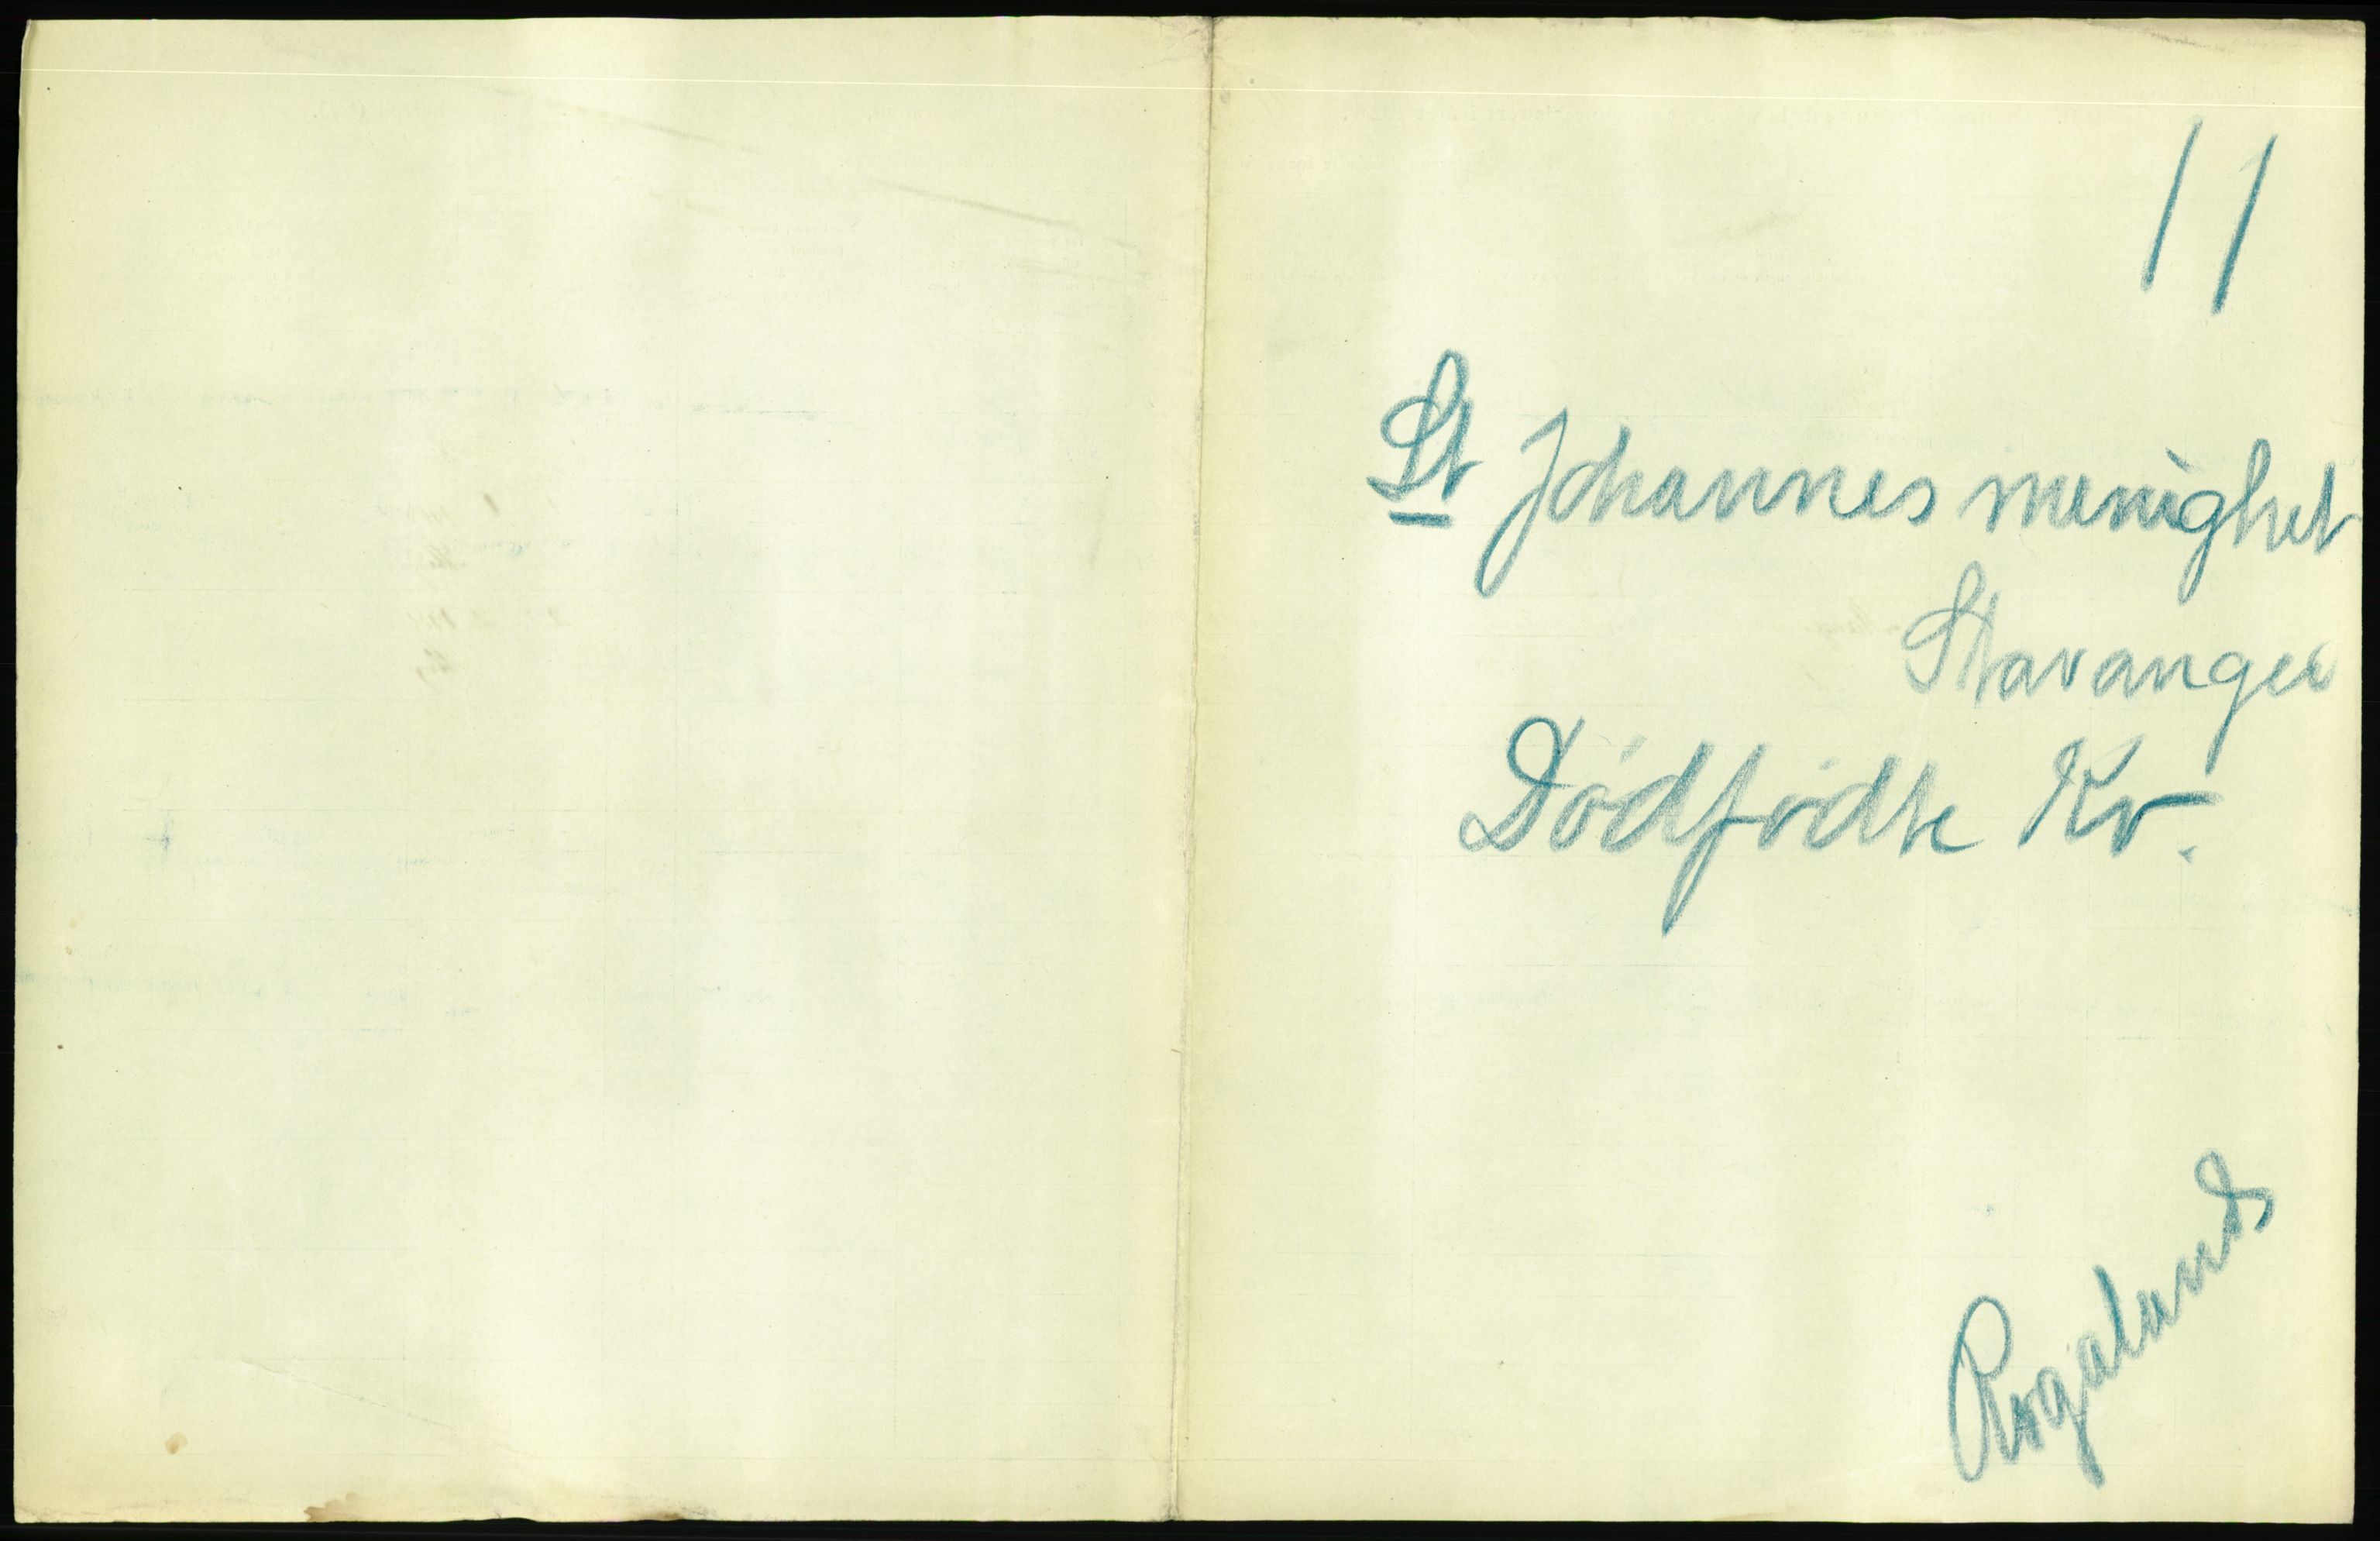 11
St Johannes menighet
Stavanger
Dødfødte Kv.
Rogalands